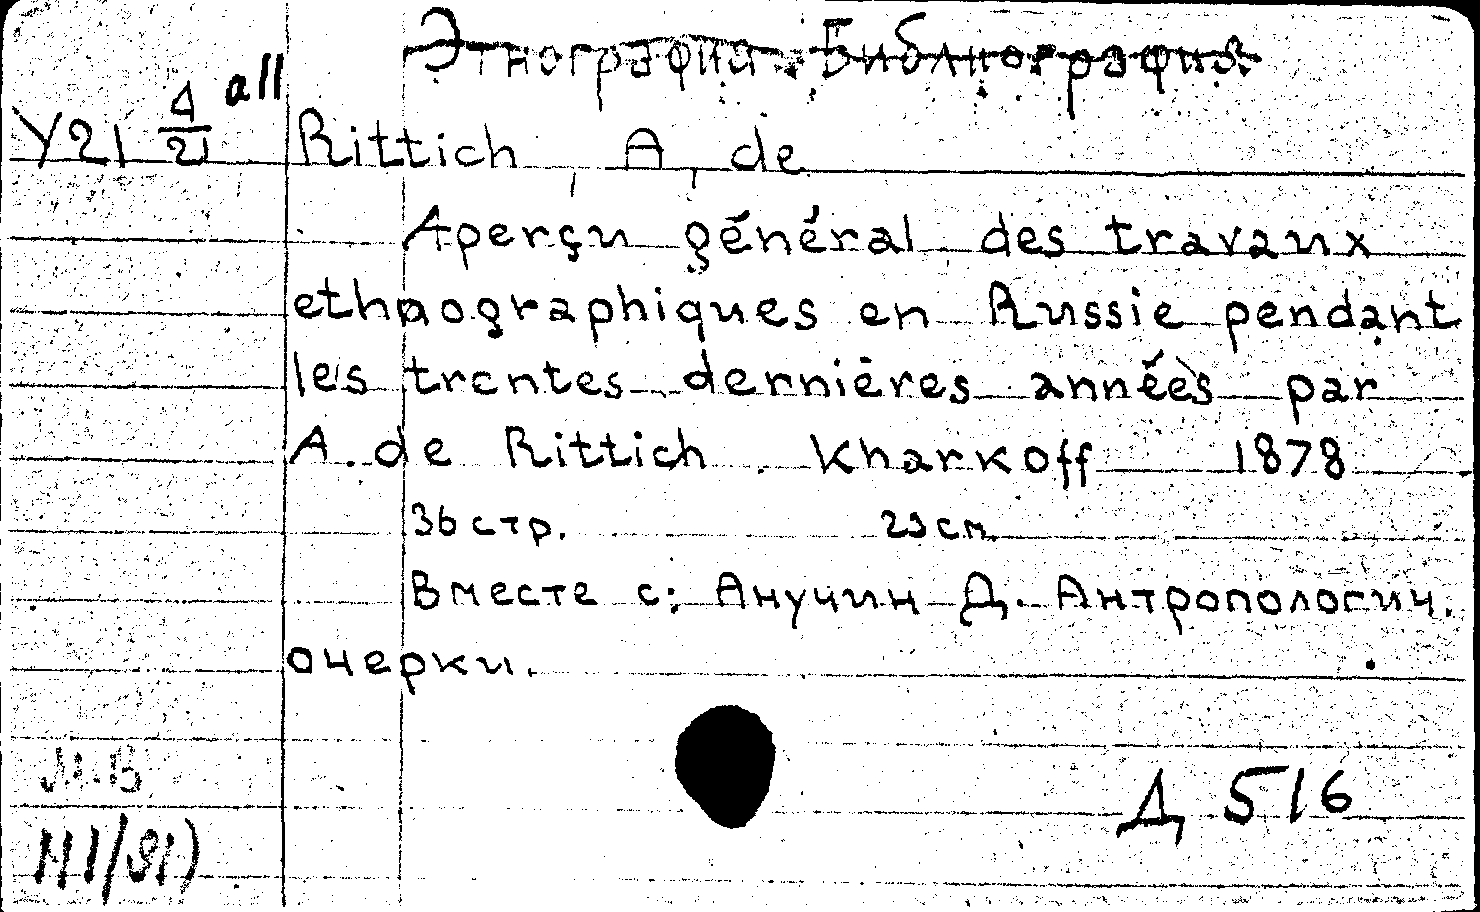 Этнография. Библиография.
У21 Д/21 all
Rittich, A, de
Aperçu général des travaux
ethnographiques en Russie pendant
les trentes dernières années par
A. de Rittich. Kharkoff 1878
36 стр. 23 см.
Вместе с: Анучин Д. Антропологич.
очерки.
Д 516